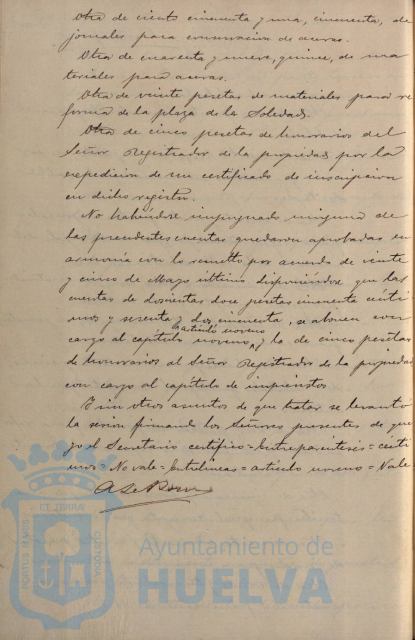 Otra de ciento cincuenta y una, cincuenta, de
jornales para construccion de aceras.
Otra de cuarenta y nueve, quince, de ma
teriales para aceras.
Otra de veinte pesetas de materiales para re
forma de la plaza de la Soledad.
Otra de cinco pesetas de honorarios del
Señor Registrador de la propiedad por la
expedicion de un certificado de inscripcion
en dicho registro.
No habiéndose impugnado ninguna de
las precedentes cuentas quedaron aprobadas en
armonía con lo resuelto por acuerdo de veinte
y cinco de Mayo último disponiéndose que las
cuentas de doscientas doce pesetas cincuenta cénti
mos y sesenta y dos cincuenta, se abonen con
artículo noveno
cargo al capítulo noveno, y la de cinco pesetas
de honorarios al Señor Registrador de la propiedad
con cargo al capítulo de imprevistos.
Y sin otros asuntos de que tratar se levantó
la sesion firmando los Señores presentes de que
yo el Secretario certifico = Entreparéntesis = cénti
mos = No vale = Entrelineas = artículo noveno = Vale
PORTUS MARIS ET TERRÆ CUSTODIA
Ayuntamiento de
HUELVA